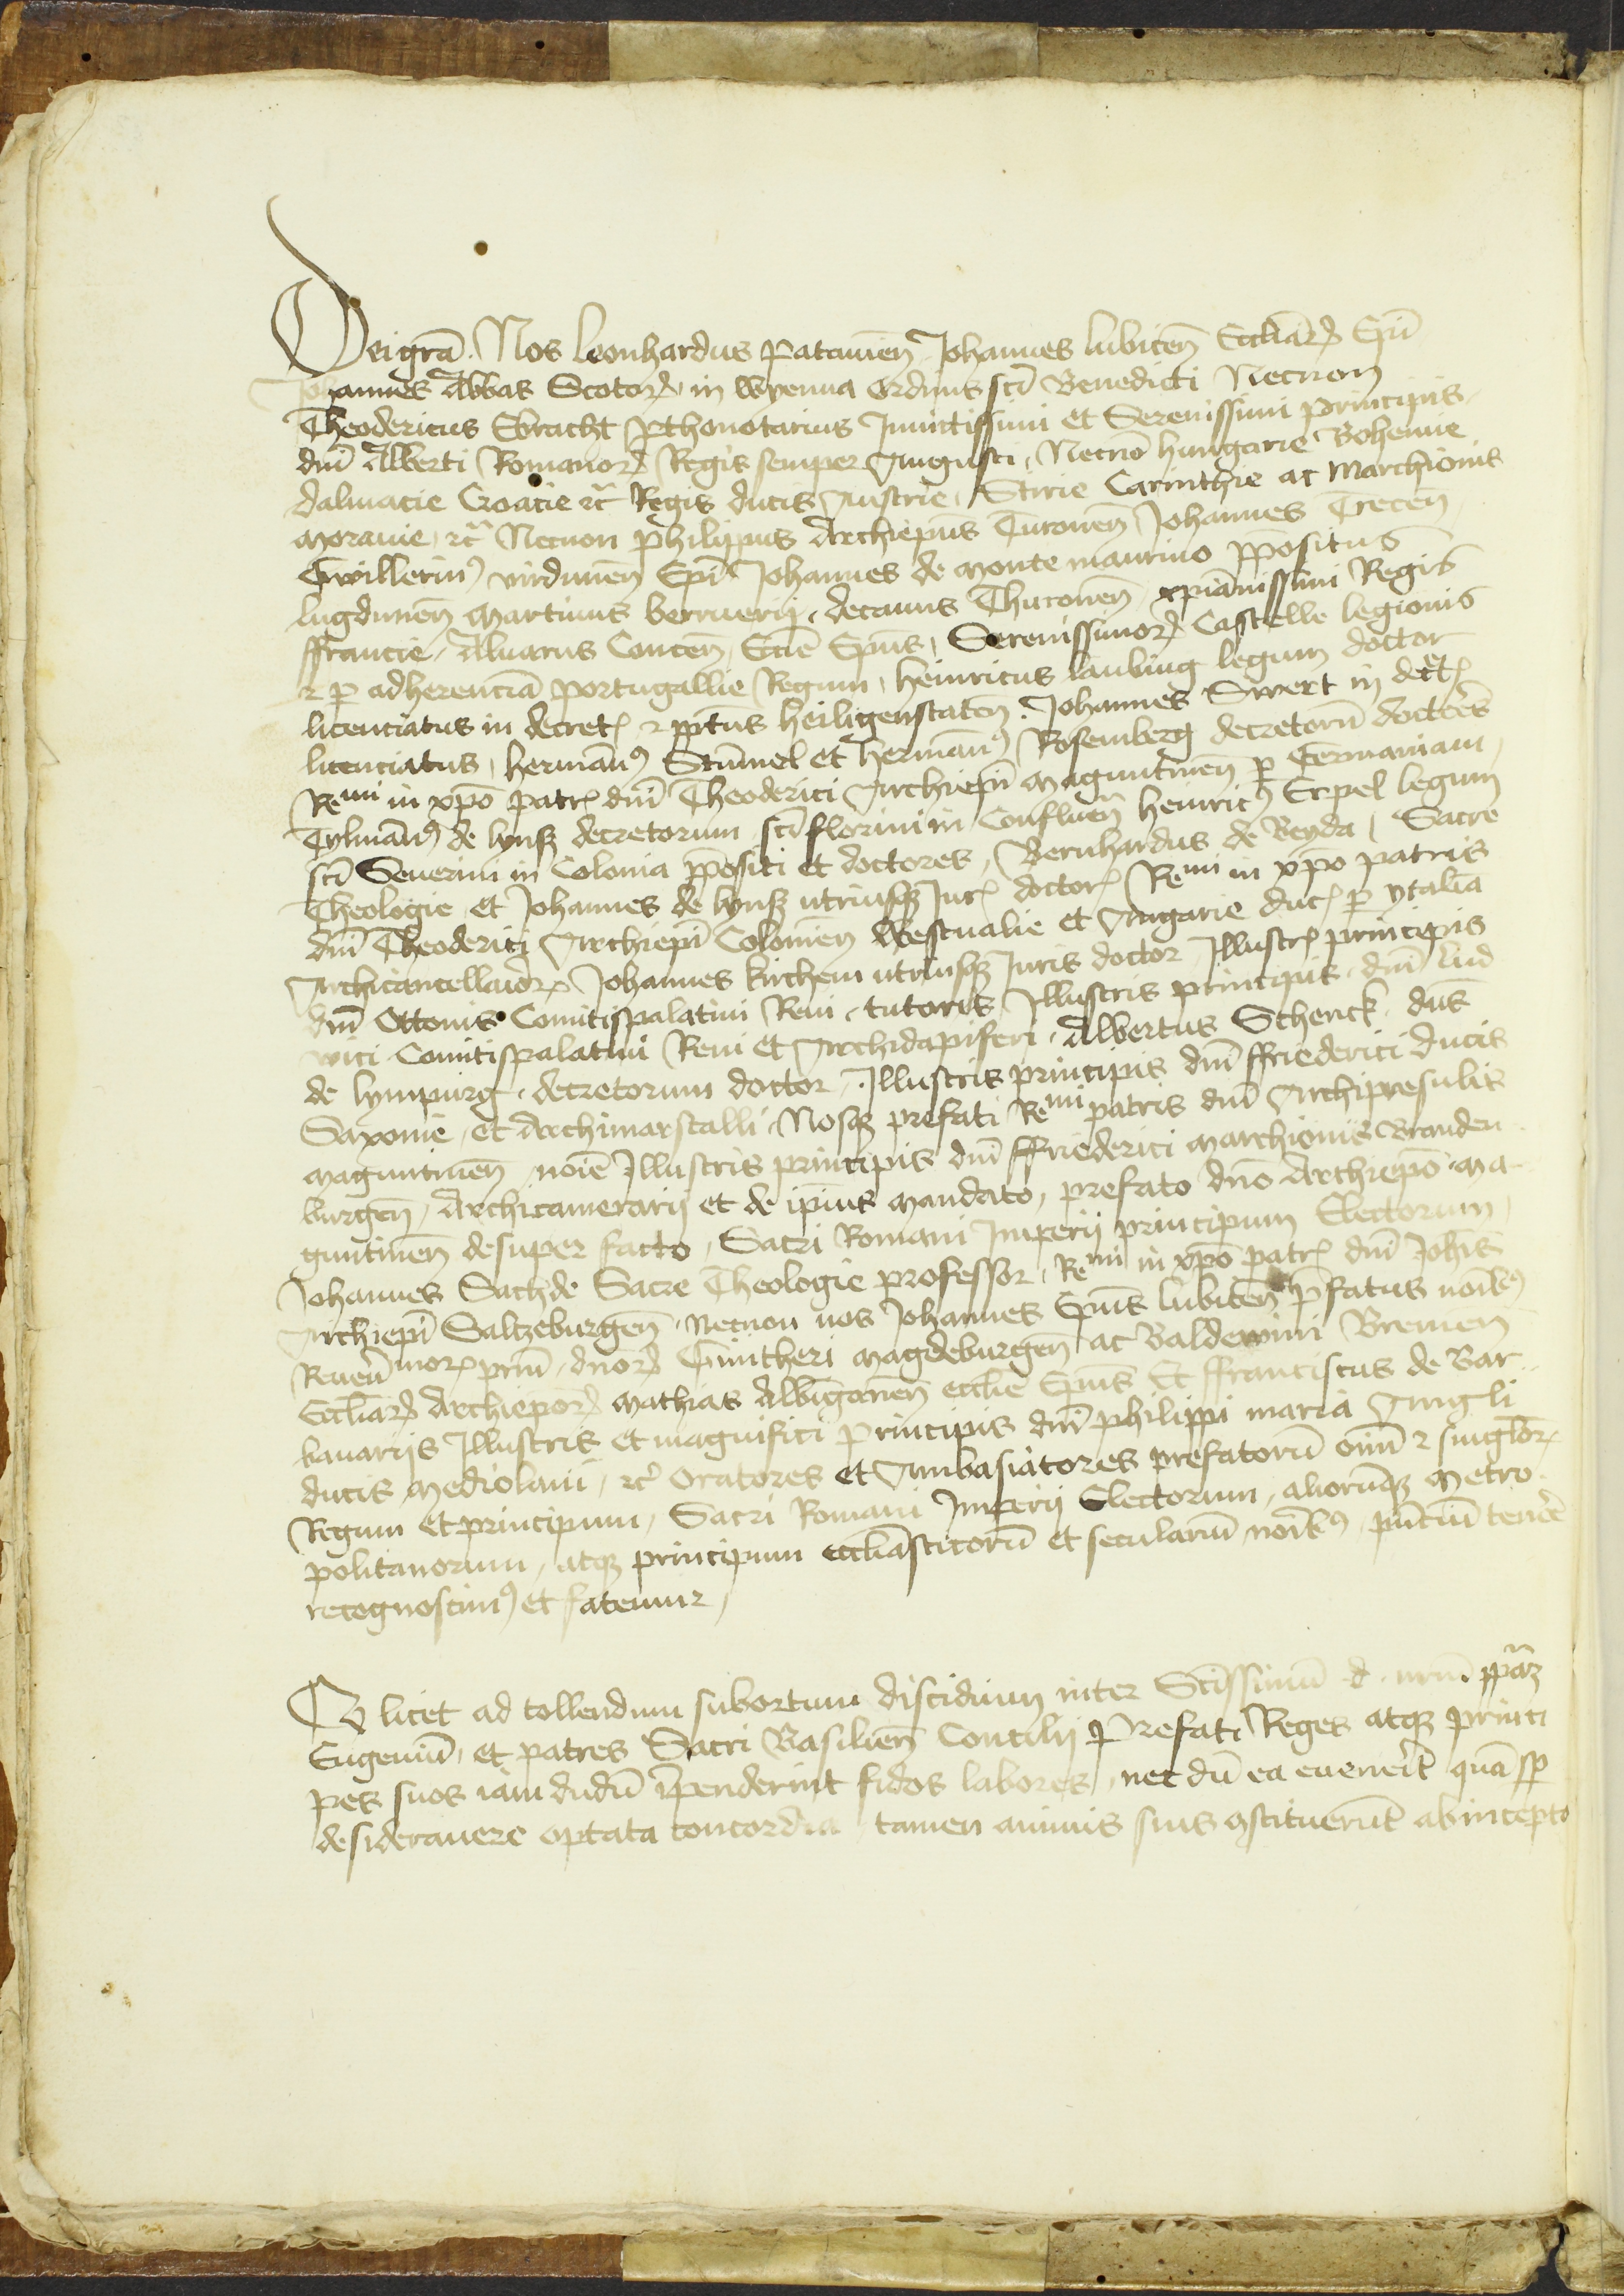 Dei grā. Nos leonhardus patauieñ Johannes lubiceñ Eccliaꝝ Epī
Johannes Abbas Scotoꝝ in wyenna ordinis scī Benedicti Necnon
Theodericus Ebracht ꝓthonotarius Inuictissimi et Serenissimi principis
dnī Alberti Romanoꝝ Regis semper Augusti, Necnō hungarie Bohemie
dalmacie Croacie ⁊c̃ Regis ducis Austrie, Stirie Carinthie ac Marchionis
Morauie, ⁊c̃ Necnon philippus Archiep̄us Turoneñ Johannes Treceñ
Gwillerm⁹ virduneñ Ep̄i Johannes de monte maurino p̄positus
lugduneñ Martinus berruerij, decanus Thuroneñ xp̄ianissimi Regis
ffrancie, Aluarus Conceñ, Eccē Ep̄us, Serenissimoꝝ Castelle legionis
⁊ ꝑ adherenciā portugallie Regum, heinricus laubing legum doctor
licenciatus in decretꝭ ⁊ p̄pitus heiligenstateñ. Johannes Swert in decretꝭ
licenciatus, hermān⁹ Stūmel et hermān⁹ Rosemberg decretorū doctores
Remi in xp̄o patrꝭ dnī Theoderici Archiep̄i Maguntineñ ꝑ Germaniam,
Tylmān⁹ de lynsz decretorum scī florini in Conflueñ heinric⁹ Erpel legum
scī Seuerini in Colonia p̄positi et doctores, Bernhardus de Reyda, Sacre
Theologie et Johannes de lynsz utriusqꝫ Jurꝭ doctorꝭ Remi in xp̄o patris
dnī Theoderici Archiep̄i Colonieñ Westualie et Angarie ducꝭ ꝑ ytaliā
Archicancellarioꝝ Johannes kirchem utriusqꝫ Juris doctor Illustrꝭ principis
dnī Ottonis Comitispalatini Reni, tutoris Illustris principis, dnī lud
wici Comitispalatini Reni et Archidapiferi, Albertus Schenck dn̄s
de lympurg, decretorum doctor, Illustris principis dnī ffriederici ducis
Saxonie, et Archimarscalli, Nosqꝫ prefati Remi patris dnī Archipresulis
Maguntineñ noīe Illustris principis dnī ffriederici Marchionis Branden
burgeñ, Archicamerarij et de ip̄ius mandato, prefato dno Archiep̄o Ma
guntineñ desuper facto, Sacri Romani Imperij principum Electorum,
Johannes Sachde Sacre Theologie professor, Remi in xp̄o patrꝭ dnī Joh̄is
Archiep̄i Saltzeburgeñ, Necnon nos Johannes Ep̄us lubiceñ p̄fatus noīb⁹
Reuerēmoꝝ prim̄, dnoꝝ Guntheri Magdeburgeñ ac Baldewini Bremeñ
Eccliaꝝ Archiep̄oꝝ Mathias Albiganeñ ecclie Ep̄us Et ffranciscus de Bar
bauarijs Illustris et magnifici principis dnī philippi maria Angli
ducis Mediolani, ⁊c̃ oratores et Ambasiatores prefatorū oīm ⁊ singloꝝ
Regum et principum, Sacri Romani Imperij Electorum, aliorūqꝫ Metro
politanorum, atqꝫ principum eccliasticorū et secularium noīb⁹, p̄nciū tenore
recognoscim⁹ et fatemur,
Et licet ad tollendum subortum discidium inter Sc̄issimū d. nrm̄ pp̄ā
Eugeniū, et patres Sacri Basilieñ Concilij Prefati Reges atqꝫ princi
pes suos iam dudū īpenderint fidos labores, nec dū ea euenerīt quā sꝑ
desiderauere optata concordia tamen animis suis ꝯstituerūt ab incepto